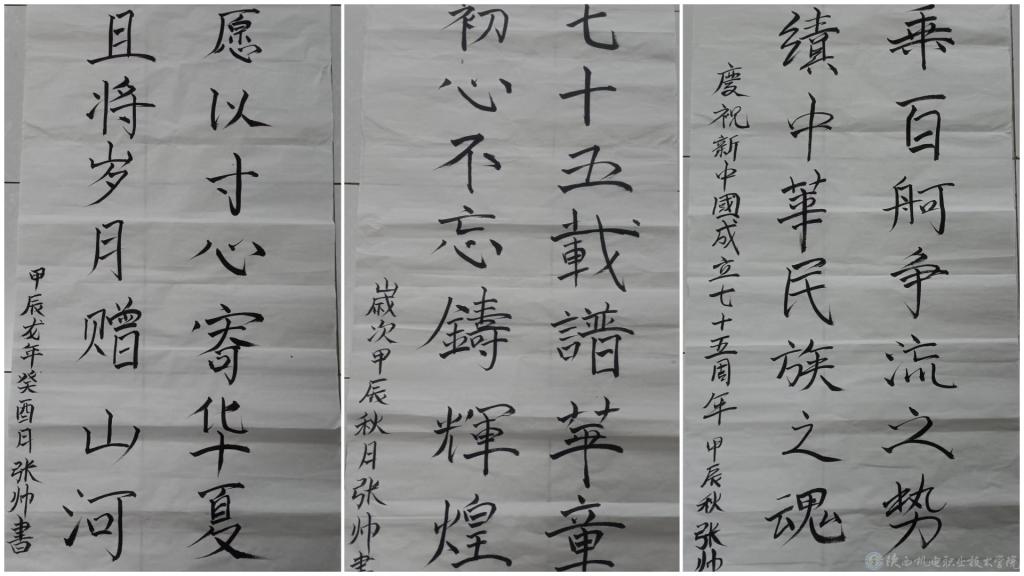 愿以寸心寄华夏
且将岁月赠山河
甲辰龙年癸酉月张帅书
七十五載譜華章
初心不忘鑄輝煌
歲次甲辰秋月张帅書
乘百舸争流之势
續中華民族之魂
慶祝新中國成立七十五周年 甲辰秋张帅
陕西机电职业技术学院